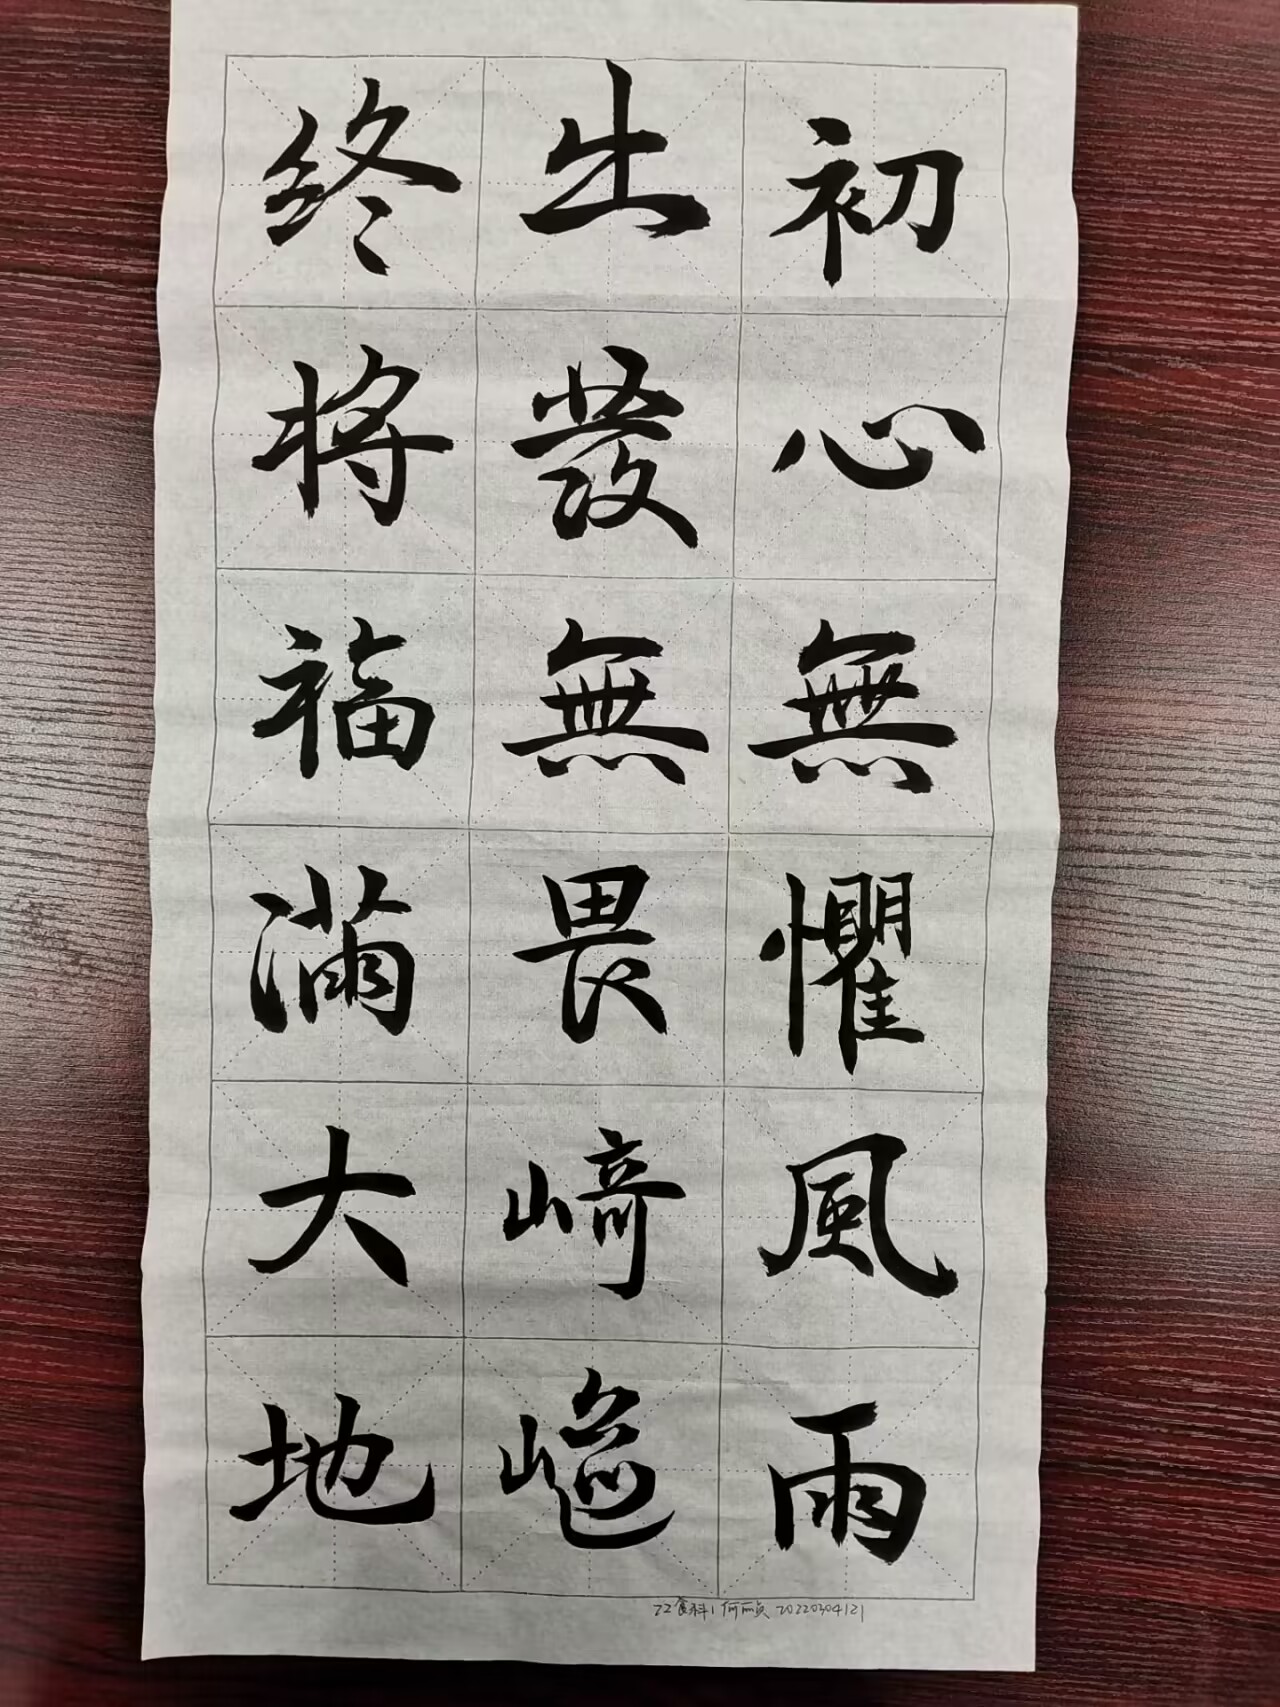 初心無懼風雨
出發無畏崎嶇
终将福滿大地
22食科1 何丽贞 20220304121